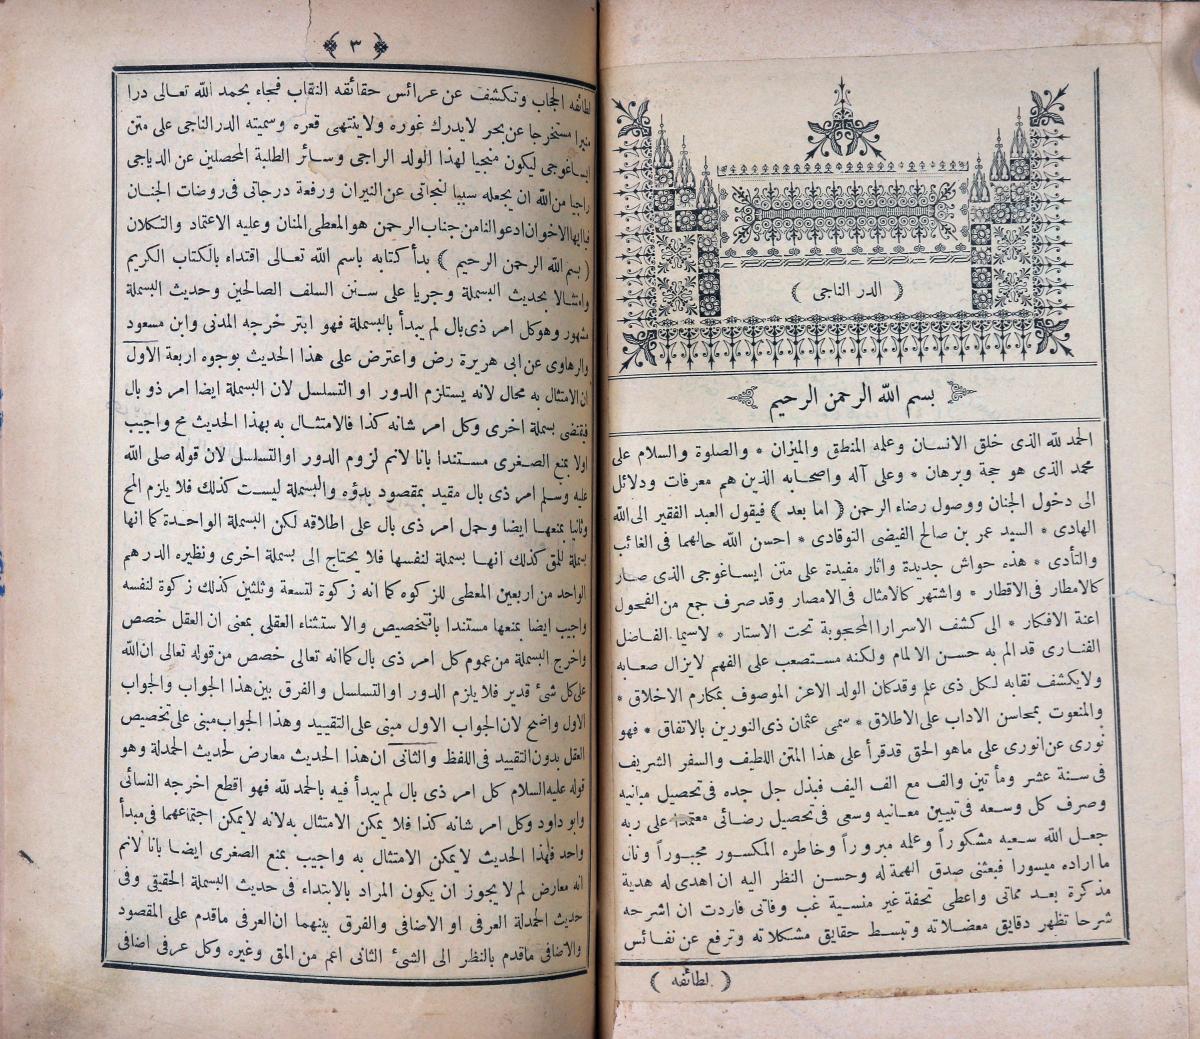 ﴿ الدر الناجى ﴾
بسم الله الرحمن الرحيم
الحمد لله الذى خلق الانسان وعلمه المنطق والميزان * والصلوة والسلام على
محمد الذى هو حجة وبرهان * وعلى آله واصحابه الذين هم معرفات ودلائل
الى دخول الجنان ووصول رضاء الرحمن ﴿ اما بعد ﴾ فيقول العبد الفقير الى الله
الهادى * السيد عمر بن صالح الفيضى التوقادى * احسن الله حالهما فى الغائب
والتأدى * هذه حواش جديدة واثار مفيدة على متن ايساغوجى الذى صار
كالامطار فى الاقطار * واشتهر كالامثال فى الامصار وقد صرف جمع من الفحول
اعنة الافكار * الى كشف الاسرارا المحجوبة تحت الاستار * لاسيما الفاضل
الفنارى قد الم به حسن الالمام ولكنه مستصعب على الفهم لايزال صعابه
ولايكشف نقابه لكل ذى علم وقدكان الولد الاعز الموصوف بمكارم الاخلاق *
والمنعوت بمحاسن الاداب على الاطلاق * سمى عثمان ذى النورين بالاتفاق * فهو
نورى عن انورى على ماهو الحق قدقرأ على هذا المتن اللطيف والسفر الشريف
فى سنة عشر ومأتين والف مع الف اليف فبذل جل جده فى تحصيل مبانيه
وصرف كل وسعه فى تبيين معانيه وسعى فى تحصيل رضائى معتمدا على ربه
جعل الله سعيه مشكوراً وعلمه مبروراً وخاطره المكسور مجبوراً ونال
ما اراده ميسورا فبعثنى صدق الهمة له وحسن النظر اليه ان اهدى له هدية
مذكرة بعد مماتى واعطى تحفة غير منسية غب وفاتى فاردت ان اشرحه
شرحا تظهر دقايق معضلاته وتبسط حقايق مشكلاته وترفع عن نفائس
﴿ لطائفه ﴾
﴿ ٣ ﴾
لطائفه الحجاب وتكشف عن عرائس حقائقه النقاب فجاء بحمد الله تعالى درا
منيرا مستخرجا عن بحر لايدرك غوره ولاينتهى قعره وسميته الدر الناجى على متن
ايساغوجى ليكون منجيا لهذا الولد الراجى وسائر الطلبة المحصلين عن الدياجى
راجيا من الله ان يجعله سببا لنجاتى عن النيران ورفعة درجاتى فى روضات الجنان
فيا ايها الاخوان ادعو النا من جناب الرحمن هو المعطى المنان وعليه الاعتماد والتكلان
﴿ بسم الله الرحمن الرحيم ﴾ بدأ كتابه باسم الله تعالى اقتداء بالكتاب الكريم
وامتثالا بحديث البسملة وجريا على سنن السلف الصالحين وحديث البسملة
مشهور وهو كل امر ذى بال لم يبدأ بالبسملة فهو ابتر خرجه المدنى وابن مسعود
والرهاوى عن ابى هريرة رض واعترض على هذا الحديث بوجوه اربعة الاول
ان الامتثال به محال لانه يستلزم الدور او التسلسل لان البسملة ايضا امر ذو بال
فيقتضى بسملة اخرى وكل امر شانه كذا فالامتثال به بهذا الحديث مح واجيب
اولا بمنع الصغرى مستندا بانا لانم لزوم الدور اوالتسلسل لان قوله صلى الله
عليه وسلم امر ذى بال مقيد بمقصود بدؤه والبسملة ليست كذلك فلا يلزم المح
وثانيا بمنعها ايضا وحمل امر ذى بال على اطلاقه لكن البسملة الواحدة كما انها
بسملة للمق كذلك انها بسملة لنفسها فلا يحتاج الى بسملة اخرى ونظيره الدرهم
الواحد من اربعين المعطى للزكوه كما انه زكوة لتسعة وثلثين كذلك زكوة لنفسه
واجيب ايضا بمنعها مستندا بالتخصيص والاستثناء العقلى بمعنى ان العقل خصص
واخرج البسملة من عموم كل امر ذى بال كما انه تعالى خصص من قوله تعالى ان الله
على كل شئ قدير فلا يلزم الدور او التسلسل والفرق بين هذا الجواب والجواب
الاول واضح لان الجواب الاول مبنى على التقييد وهذا الجواب مبنى على تخصيص
العقل بدون التقييد فى اللفظ والثانى ان هذا الحديث معارض لحديث الحمدلة وهو
قوله عليه السلام كل امر ذى بال لم يبدأ فيه بالحمد لله فهو اقطع اخرجه النسائى
وابو داود وكل امر شانه كذا فلا يمكن الامتثال به لانه لايمكن اجتماعهما فى مبدأ
واحد فلهذا الحديث لايمكن الامتثال به واجيب بمنع الصغرى ايضا بانا لانم
انه معارض لم لايجوز ان يكون المراد بالابتداء فى حديث البسملة الحقيقى وفى
حديث الحمدلة العرفى او الاضافى والفرق بينهما ان العرفى ماقدم على المقصود
والاضافى ماقدم بالنظر الى الشئ الثانى اعم من المق وغيره وكل عرفى اضافى